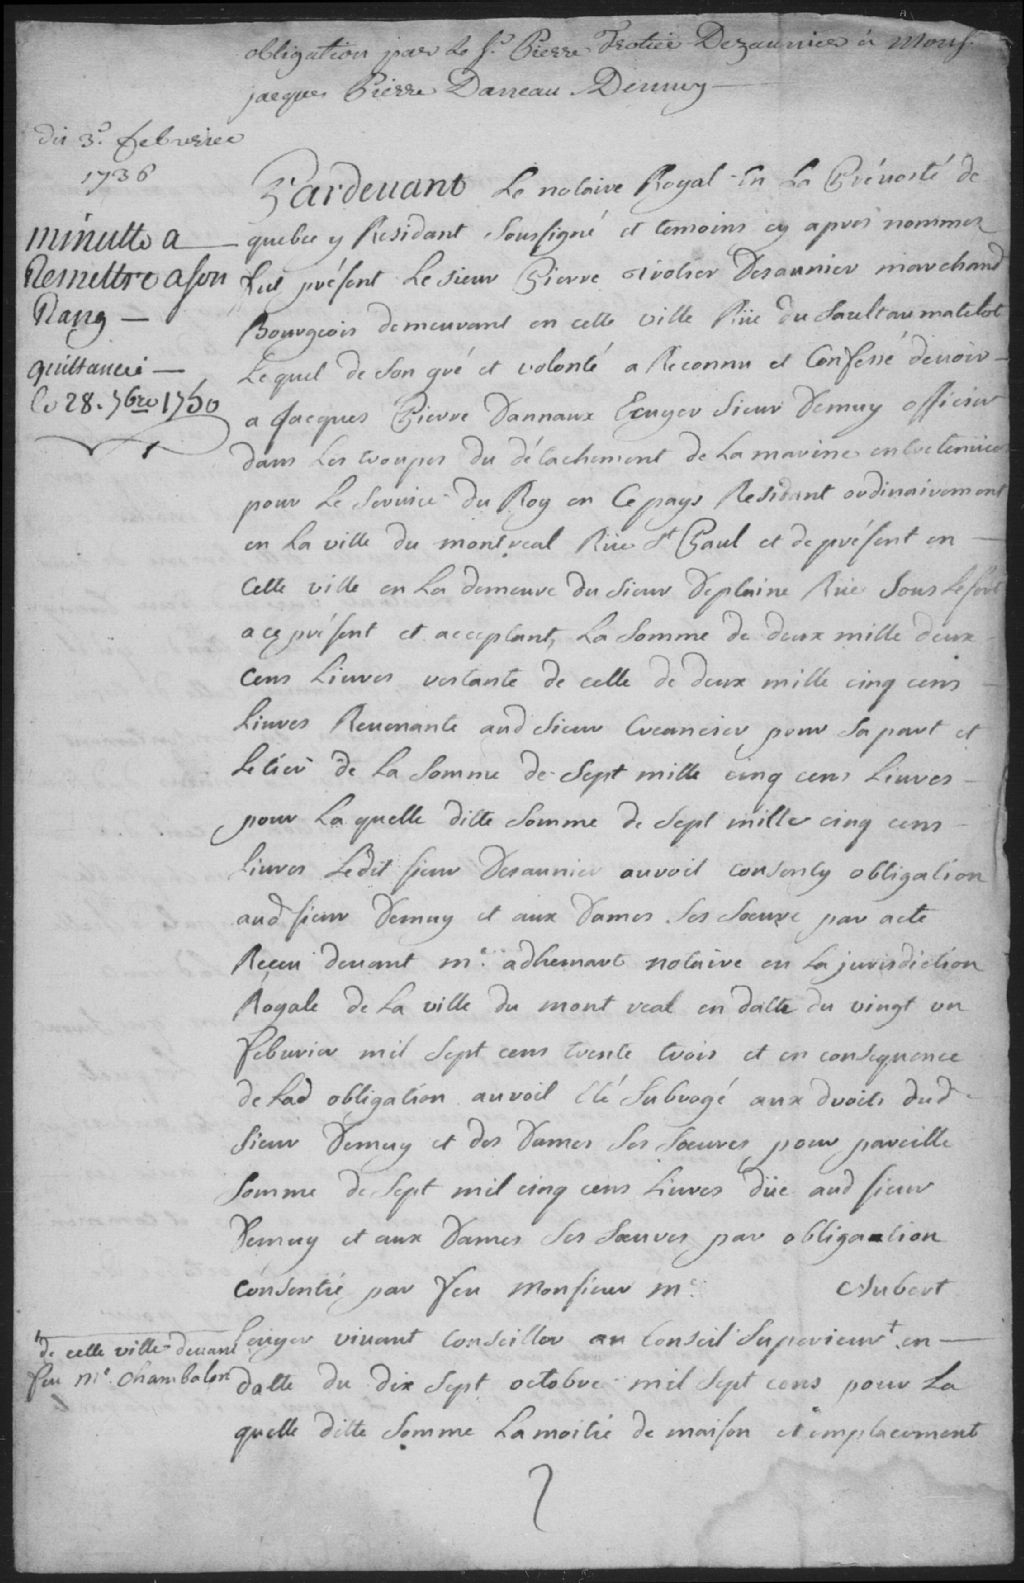 obligation par Le Sr. Pierre Trotier Dezaunier à Mons.
jacques Pierre Daneau Demuy
du 3e. febvrier
1736
minutte a
Remettre a son
Rang
quittancé
le 28. 7bre 1750
Pardevant Le notaire Royal En La Prévosté de
quebec y Residant Soussigné et temoins cy apres nommez
fut présent Le sieur Pierre trotier Desaunier marchand
Bourgeois demeurant en cette ville Rüe du Sault au matelot
Lequel de son gré et volonté a Reconnu et Confessé devoir
a Jacques Pierre Dannaux Ecuyer Sieur Demuy officier
dans Les troupes du détachement de La marine entretenües
pour Le service du Roy en Ce pays Residant ordinairement
en La ville du montreal Rüe St Paul et de présent en
Cette ville en La demeure du Sieur Deplaine Rüe Sous Le fort
a ce présent et acceptant, La Somme de deux mille deux
Cens Livres restante de celle de deux mille cinq cens
Livres Revenante aud Sieur Creancier pour Sa part et
Le tier de La Somme de Sept mille cinq cens Livres
pour La quelle ditte Somme de Sept mille cinq cens
Livres Ledit sieur Desaunier auroit consenty obligation
aud sieur Demuy et aux Dames Ses Soeurs par acte
Reçeu devant me. adhemart notaire en La jurisdiction
Royale de La ville du mont real en datte du vingt un
febvrier mil Sept cens trente trois et en consequence
de Lad obligation auroit été Subrogé aux droits dud
Sieur Demuy et des Dames Ses Soeures pour pareille
Somme de Sept mil cinq cens Livres düe aud sieur
Demuy et aux Dames Ses Soeures par obligation
consentie par feu Monsieur me. Aubert
Ecuyer vivant Conseiller au Conseil Superieur + en
+ de cette ville devant
feu me Chambalon
datte du dix Sept octobre mil Sept cens pour La
quelle ditte Somme La moitié de maison et emplacement